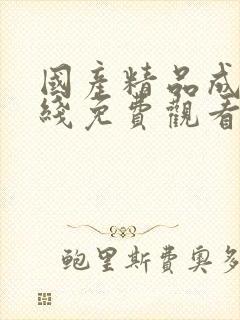 國產精品成
綫免費觀看
鲍里斯費奥多